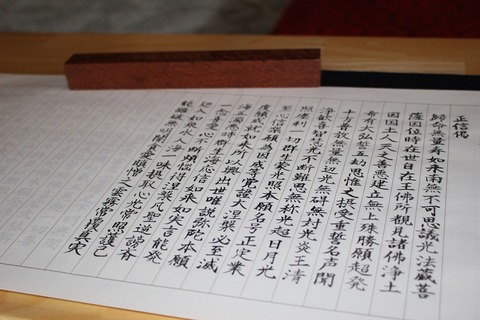 正信偈
歸命無量寿如来南無不可思議光法蔵菩
薩因位時在世自在王佛所覩見諸佛浄土
因国土人天之善悪建立無上殊勝願超発
希有大弘誓五劫思惟之摂受重誓名声聞
十方普放無量無辺光無碍無対光炎王清
浄歓喜智慧光不断難思無称光超日月光
照塵刹一切群生蒙光照本願名号正定業
至心信楽願為因成等覚證大涅槃必至滅
度願成就如来所以興出世唯説弥陀本願
海五濁悪時群生海応信如来如実言能発
一念喜愛心不断煩悩得涅槃凡聖逆謗斉
廻入如衆水入海一味摂取心光常照護已
能雖破無明闇貪愛瞋憎之雲霧常覆真実